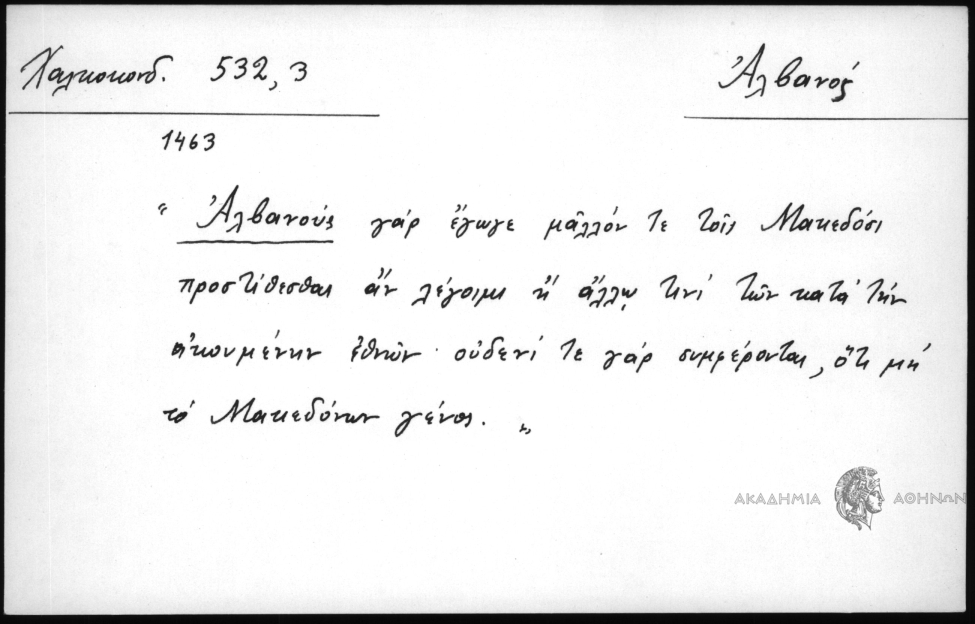 Χαλκοκονδ. 532,3
Ἀλβανός
1463
“ Ἀλβανούς γάρ ἔγωγε μᾶλλόν τε τοῖς Μακεδόσι
προστίθεσθαι ἄν λέγοιμι ἤ ἄλλῳ τινί τῶν κατά τήν
οἰκουμένην ἐθνῶν· οὐδενί τε γάρ συμφέρονται, ὅτι μή
τό Μακεδόνων γένος. „
ΑΚΑΔΗΜΙΑ ΑΘΗΝΩΝ